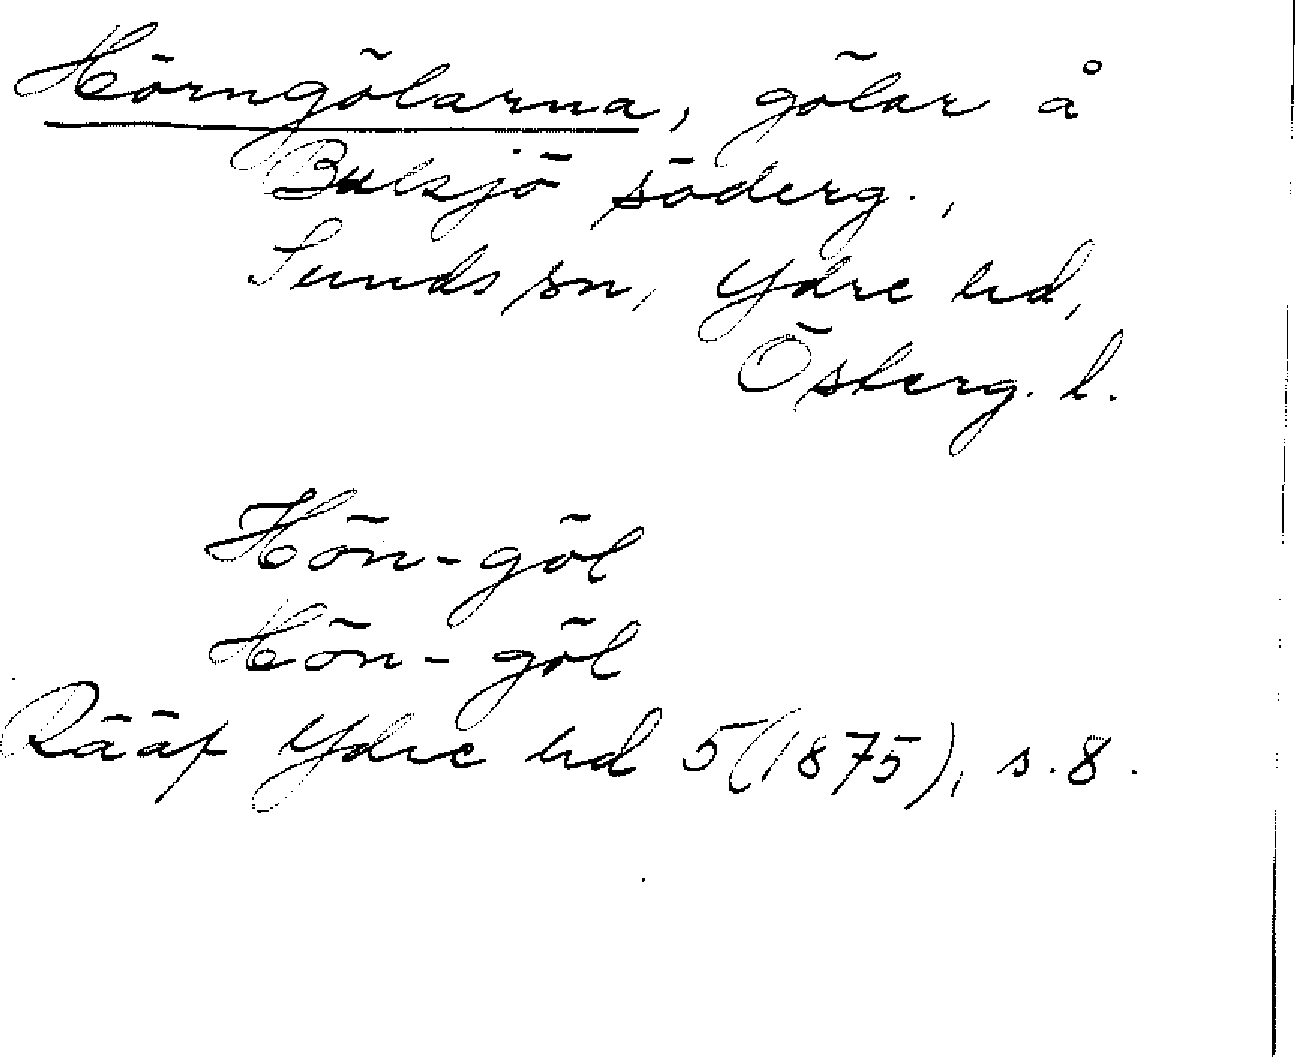 Hörngölarna, gölar å
Bulsjö söderg.,
Sunds sn, Ydre hd,
Österg. l.
Hön-göl
Hön-göl
Rääf Ydre hd 5(1875), s. 8.